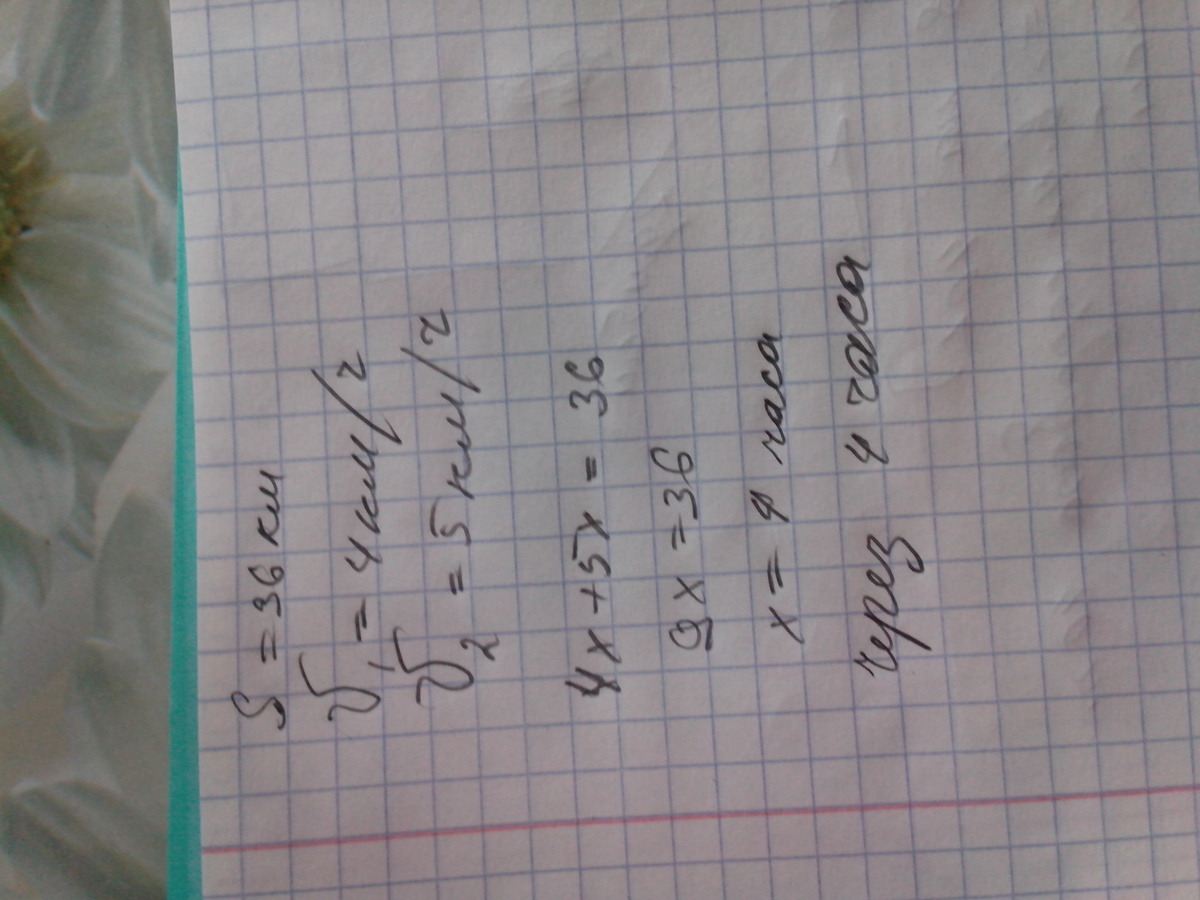 S = 36 км
V₁ = 4 км/ч
V₂ = 5 км/ч
4x + 5x = 36
9x = 36
x = 4 часа
через 4 часа